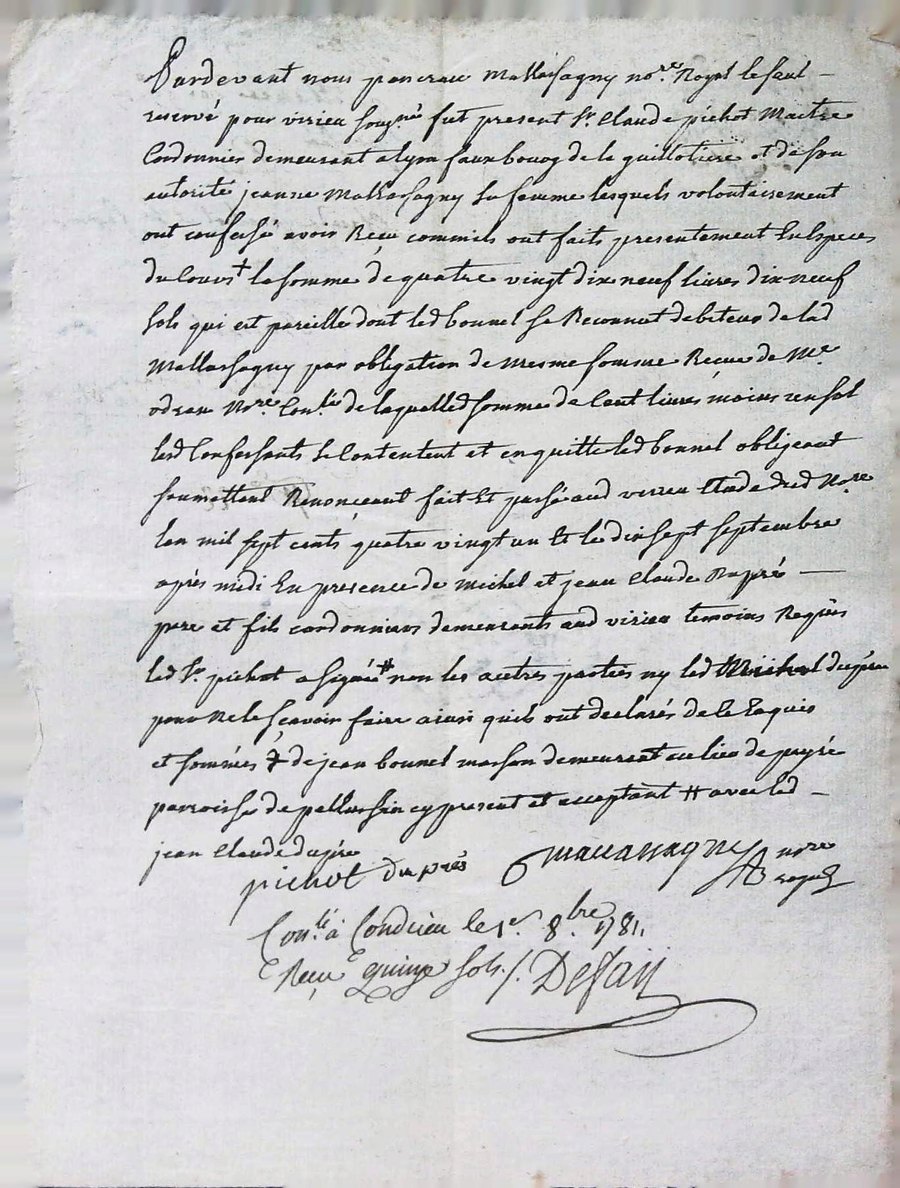 Pardevant nous pancrace Mallassagny no.re Royal le seul
reservé pour virieu soug.né fut present Sr. Claude pichot Maitre
Cordonnier demeurant a lyon fauxbourg de la guillotiere et de son
autorité jeanne Mallassagny sa femme lesquels volontairement
ont confessé avoir Recu comme ils ont faits presentement En Especes
du Cours ‡ la somme de quatre vingt dix neuf Livres dix neuf
sols qui est pareille dont led bonnel se Reconnut debiteur de lad
Mallassagny par obligation de mesme somme Recue de Me
Nore. Con.lée de laquelle d somme de Cent livres moins un sol
lesd Confessants se Contentent et en quitte led bonnel obligeant
soumettant Renonceant fait Et passé aud virieu Etude dud Nore
lan mil sept cents quatre vingt un Et le dix sept septembre
après midi En presence de Michel et jean Claude Dupré
pere et fils cordonniers demeurants aud virieu temoins Requis
led Sr. pichot a signé # non les autres parties ny led Michel dupré
pour ne le sçavoir faire ainsi quils ont declarés de ce Enquis
et sommés ‡ de jean bonnel masson demeurant au lieu de
parroisse de pellussin cy present et acceptant # avec led
jean Claude dupré
pichot Dupré Mallassagny nore
royal
Con.lé à Condrieu le 1er. 8bre. 1781.
Reçu quinze sols /. Defaÿ